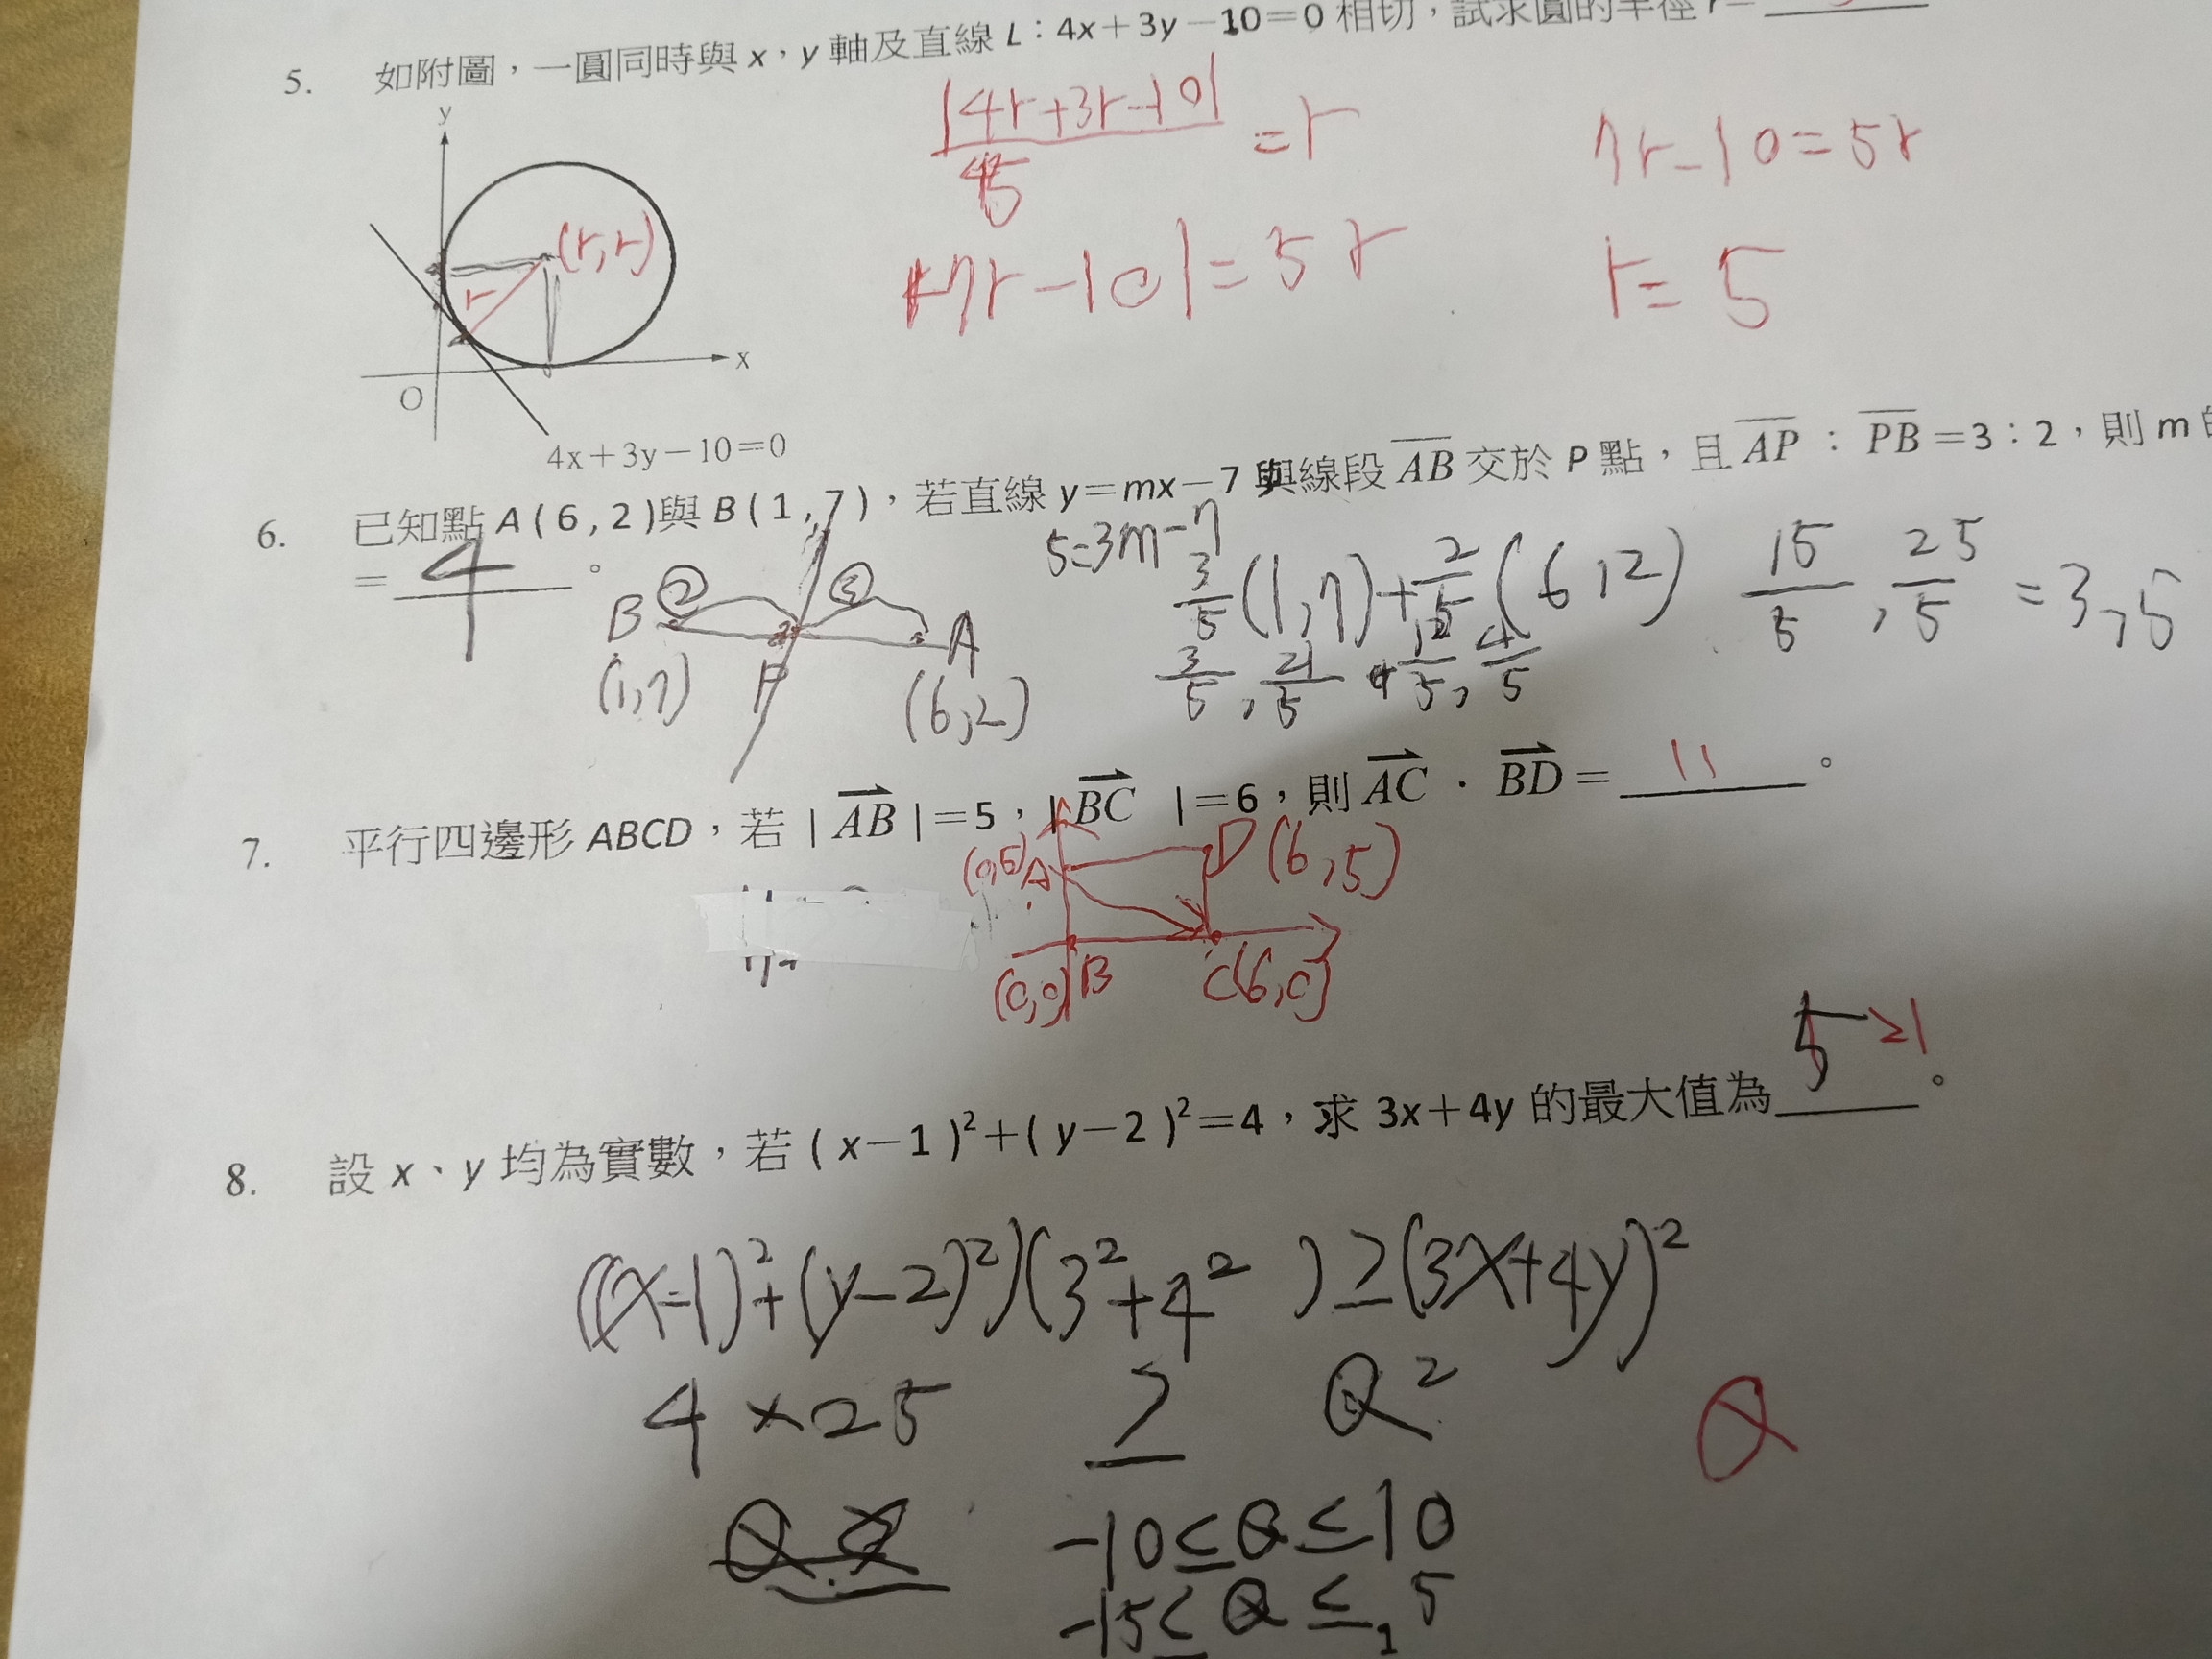 5. 如附圖，一圓同時與 x，y 軸及直線 L：4x＋3y－10＝0 相切，試求圓的半徑 r＝
|4r+3r-10| / 5 = r
7r-10=5r
|7r-10|=5r
r=5
y
(r,r)
r
O
x
4x＋3y－10＝0
6. 已知點 A ( 6 , 2 )與 B ( 1 , 7 )，若直線 y＝mx－7 與線段 AB 交於 P 點，且 AP：PB＝3：2，則 m
＝ 4 。
5=3m-7
3/5 (1,7) + 2/5 (6,2) 15/5 , 25/5 = 3,5
3/5 , 21/5 + 12/5 , 4/5
B ② P ③ A
(1,7) (6,2)
7. 平行四邊形 ABCD，若 | AB |＝5，| BC |＝6，則 AC · BD＝ 11 。
(0,5) A D (6,5)
(0,0) B C(6,0)
8. 設 x、y 均為實數，若 ( x－1 )²＋( y－2 )²＝4，求 3x＋4y 的最大值為 5 21 。
((x-1)²+(y-2)²)(3²+4²) ≥ (3x+4y)²
4×25 ≥ Q²
Q
-10≤Q≤10
-15≤Q≤, 5